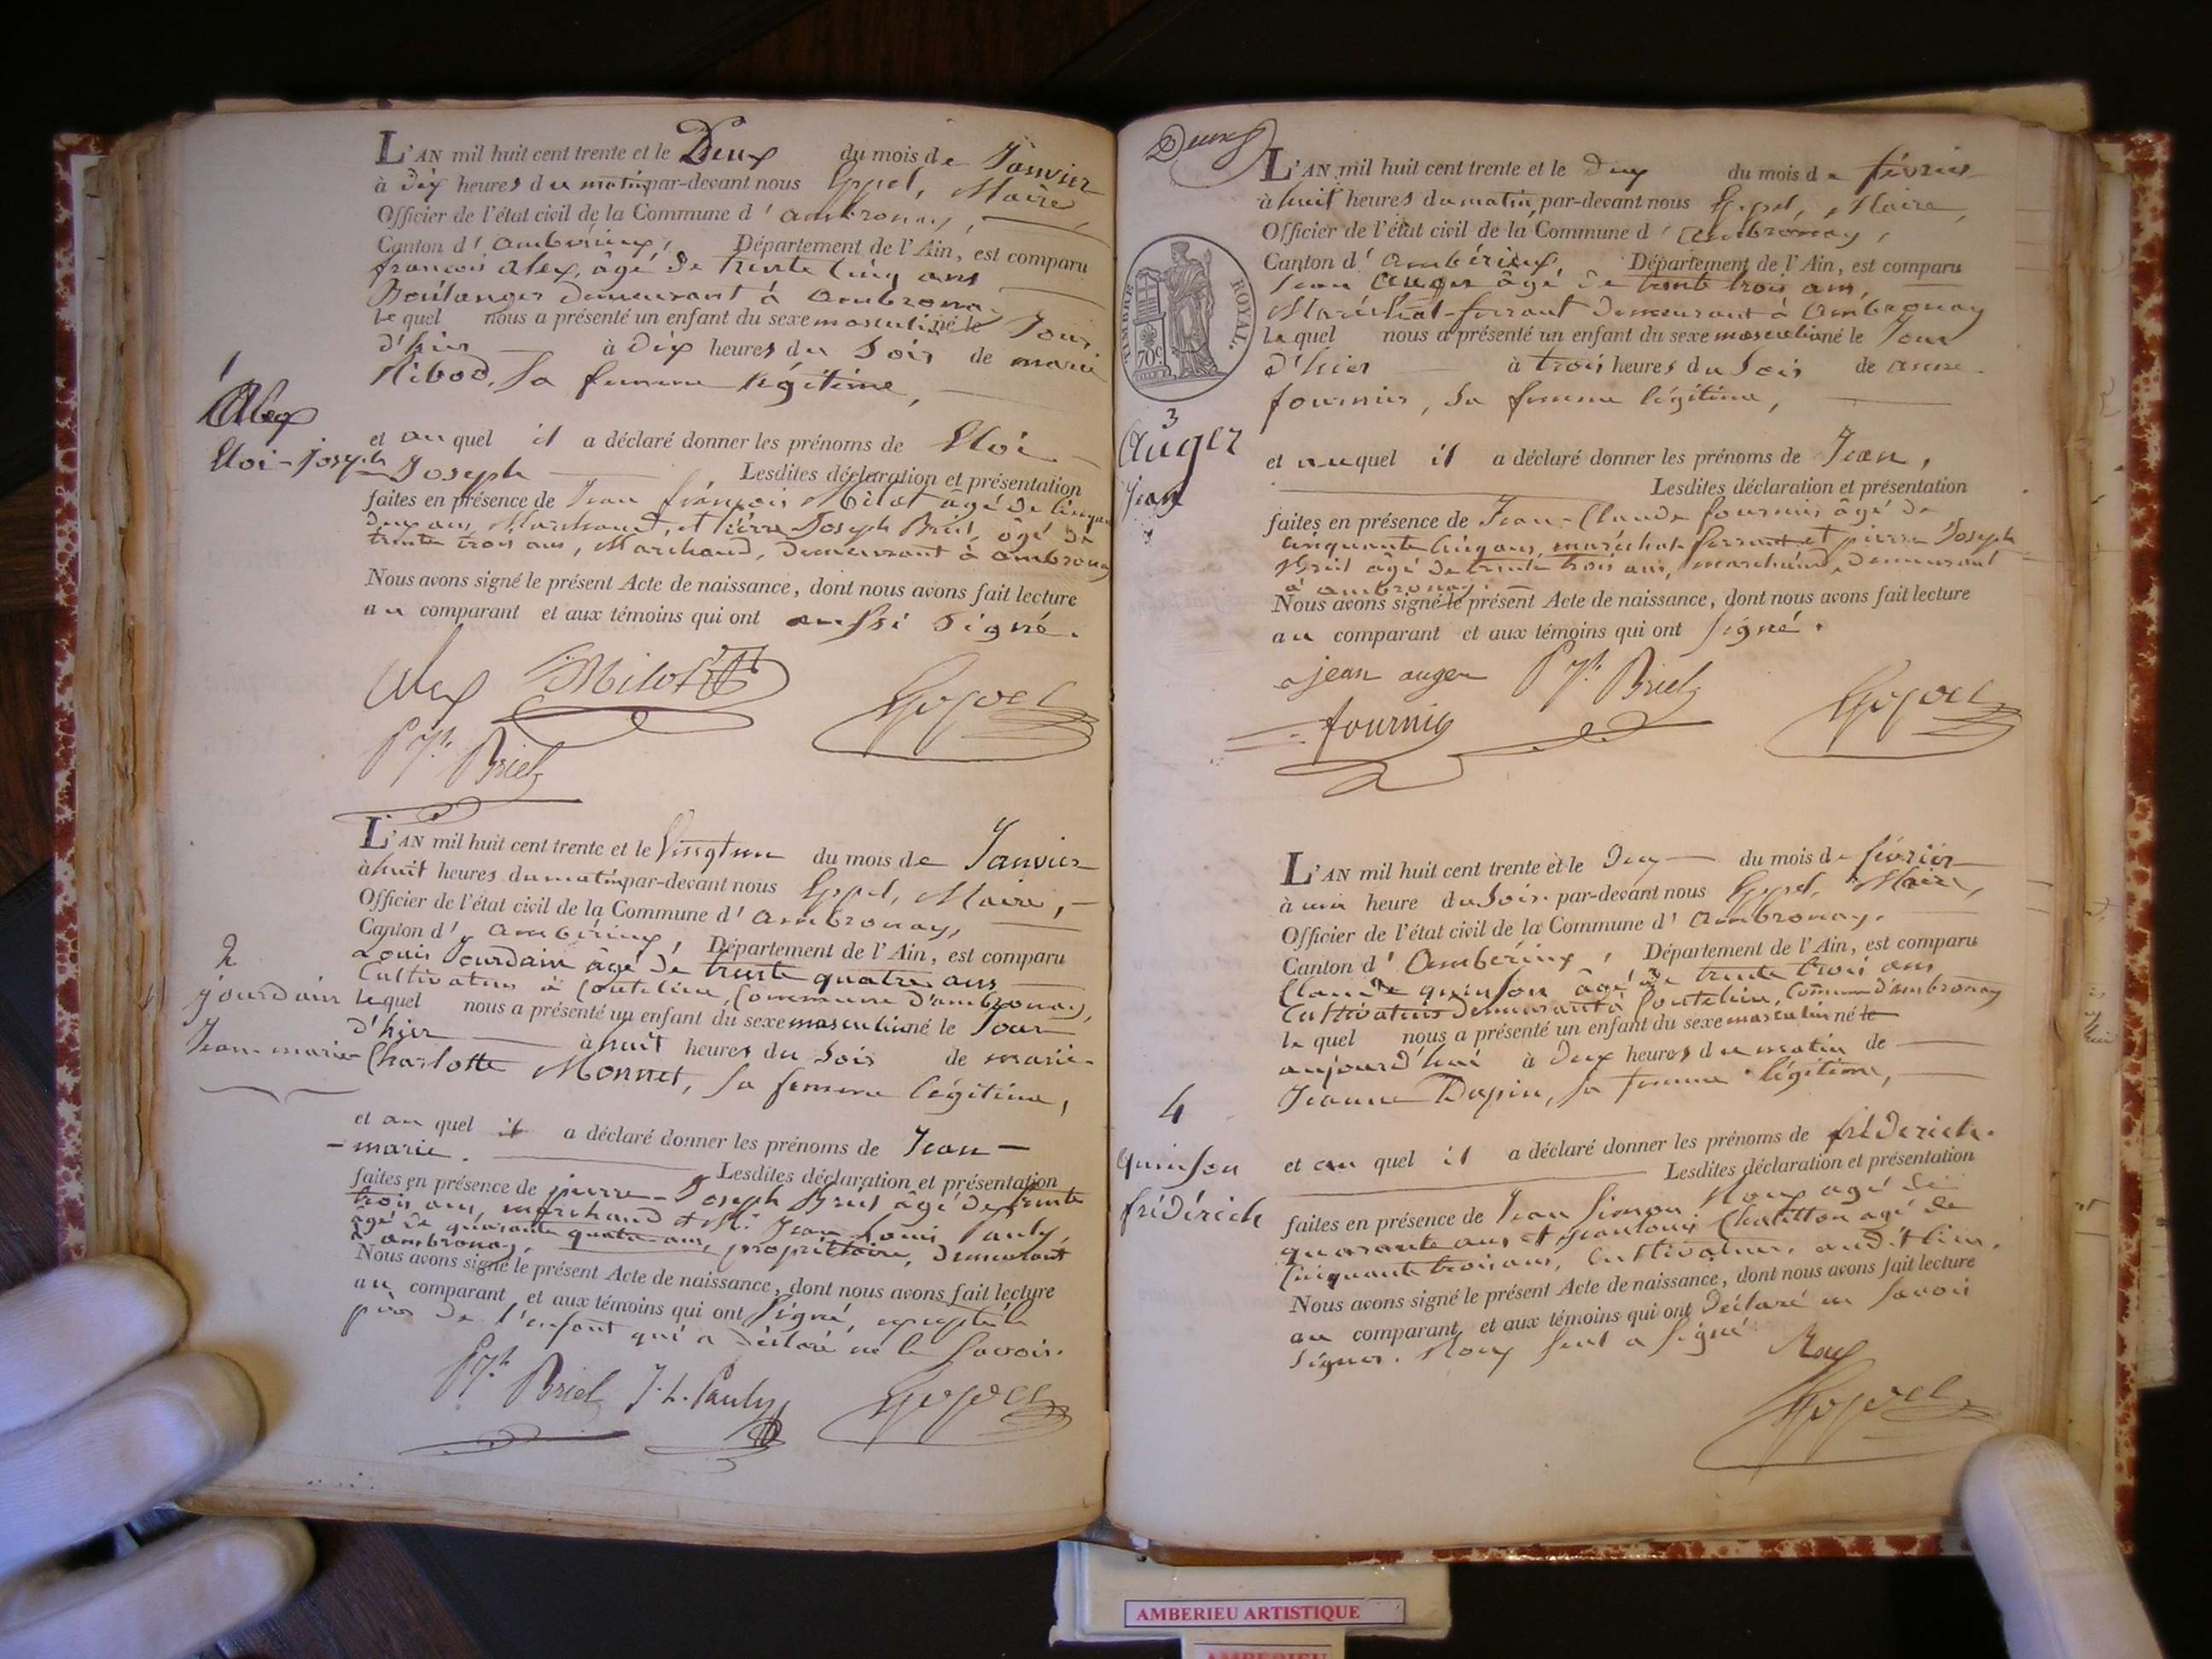 L'AN mil huit cent trente et le Deux du mois de Janvier
à Dix heures du matin par-devant nous Maire,
Officier de l'état civil de la Commune d'ambronay,
Canton d'ambérieux, Département de l'Ain, est comparu
françois alex, âgé de trente cinq ans
Boulanger demeurant à ambronay
lequel nous a présenté un enfant du sexe masculin né le Jour
d'hier à dix heures du Soir de marie
Sa femme légitime,
1
Alex
Eloi-joseph
et auquel il a déclaré donner les prénoms de Eloi
Joseph Lesdites déclaration et présentation
faites en présence de Jean françois Milot âgé de cinquante
deux ans, Marchand, et Pierre Joseph Briel, âgé de
trente trois ans, Marchand, demeurant à ambronay
Nous avons signé le présent Acte de naissance, dont nous avons fait lecture
au comparant et aux témoins qui ont aussi signé.
Alex Milot
Pre Jh. Briel
L'AN mil huit cent trente et le Vingt un du mois de Janvier
à huit heures du matin par-devant nous Maire,
Officier de l'état civil de la Commune d'ambronay,
Canton d'ambérieux, Département de l'Ain, est comparu
Louis Jourdain âgé de trente quatre ans
Cultivateur à Coutelieu, Commune d'ambronay,
lequel nous a présenté un enfant du sexe masculin né le Jour
d'hier à huit heures du Soir de marie-
Charlotte Monnet, sa femme légitime,
2
jourdain
Jean-marie
et auquel il a déclaré donner les prénoms de Jean-
-marie. Lesdites déclaration et présentation
faites en présence de pierre-Joseph Briel âgé de trente
trois ans, marchand et Mr. Jean Louis Pauly,
âgé de quarante quatre ans, propriétaire, demeurant
à ambronay.
Nous avons signé le présent Acte de naissance, dont nous avons fait lecture
au comparant et aux témoins qui ont signé, excepté le
père de l'enfant qui a déclaré ne le Savoir.
Briel J. L. Pauly
Deux
TIMBRE ROYAL.
70c
L'AN mil huit cent trente et le Deux du mois de février
à huit heures du matin, par-devant nous Maire,
Officier de l'état civil de la Commune d'ambronay,
Canton d'ambérieux, Département de l'Ain, est comparu
Jean Auger âgé de trente trois ans,
Maréchal-ferrant demeurant à ambronay
lequel nous a présenté un enfant du sexe masculin né le Jour
d'hier à trois heures du Soir de anne
fournier, sa femme légitime,
3
Auger
Jean
et auquel il a déclaré donner les prénoms de Jean,
Lesdites déclaration et présentation
faites en présence de Jean-Claude fournier âgé de
cinquante cinq ans, maréchal-ferrant et pierre Joseph
Briel âgé de trente trois ans, marchand, demeurant
à ambronay.
Nous avons signé le présent Acte de naissance, dont nous avons fait lecture
au comparant et aux témoins qui ont signé.
jean auger Briel
fournier
L'AN mil huit cent trente et le Deux du mois de février
à une heure du Soir par-devant nous Maire,
Officier de l'état civil de la Commune d'ambronay,
Canton d'ambérieux, Département de l'Ain, est comparu
Claude quinson âgé de trente trois ans
Cultivateur demeurant à Coutelieu, Commune d'ambronay
lequel nous a présenté un enfant du sexe masculin né le
aujourd'hui à deux heures du matin de
Jeanne Dapin, sa femme légitime,
4
quinson
frédérich
et auquel il a déclaré donner les prénoms de frédérich.
Lesdites déclaration et présentation
faites en présence de Jean Simon Roux agé de
quarante ans et jean louis Chatillon agé de
Cinquante trois ans, Cultivateurs, audit lieu.
Nous avons signé le présent Acte de naissance, dont nous avons fait lecture
au comparant et aux témoins qui ont déclaré ne savoir
signer. Roux seul a signé
Roux
AMBERIEU ARTISTIQUE
AMBERIEU